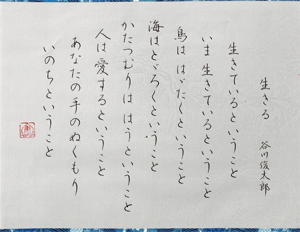 生きる
谷川俊太郎
生きているということ
いま生きているということ
鳥ははばたくということ
海はとどろくということ
かたつむりははうということ
人は愛するということ
あなたの手のぬくもり
いのちということ